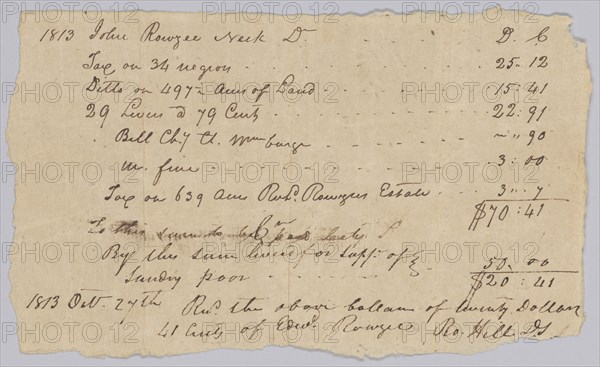 1813 John Rowzee Neck Dr D. C
Tax on 34 negros 25.12
Ditto on 497 Acres of Land 15.41
29 Levies @ 79 Cents 22.91
Bill Chy Ct. Wmburge " 90
M. fine 3.00
Tax on 639 Acres Robt. Rowzees Estate 3.. 7
$70:41
To this sum to be
By this sum for suppt. of
Sundry poor 50.00
$20:41
1813 Octr. 27th Recd. the above ballance of twenty Dollars
41 Cents of Edwd. Rowzee Geo. Hill D.S.